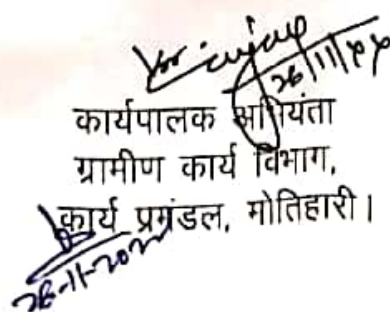 26/11/22
कार्यपालक अभियंता
ग्रामीण कार्य विभाग,
कार्य प्रमंडल, मोतिहारी।
26-11-2022